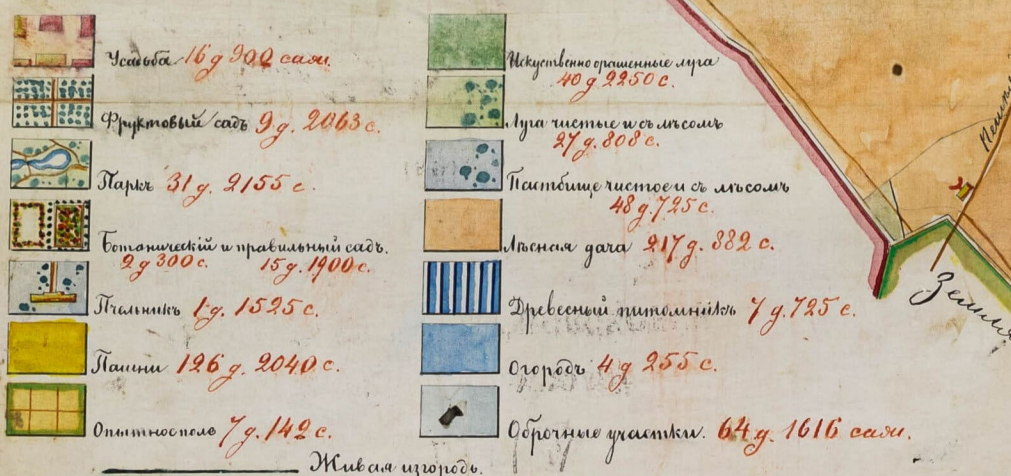 Усадьба 16 д 900 саж.
Фруктовый садъ 9 д. 2063 с.
Паркъ 31 д. 2155 с.
Ботаническій и правильный садъ.
2 д 300 с. 15 д. 1900 с.
Пчельникъ 1 д. 1525 с.
Пашни 126 д. 2040 с.
Опытное поле 7 д. 142 с.
Живая изгородь.
Искуственно орашенные луга
40 д. 2250 с.
Луга чистые и съ лѣсомъ
27 д. 808 с.
Пастбище чистое и съ лѣсомъ
48 д. 725 с.
Лѣсная дача 217 д. 382 с.
Древесный питомникъ 7 д. 725 с.
Огородъ 4 д 255 с.
Оброчные участки. 64 д. 1616 саж.
Земля